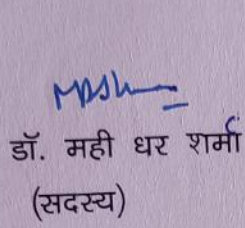 डॉ. मही धर शर्मा
(सदस्य)